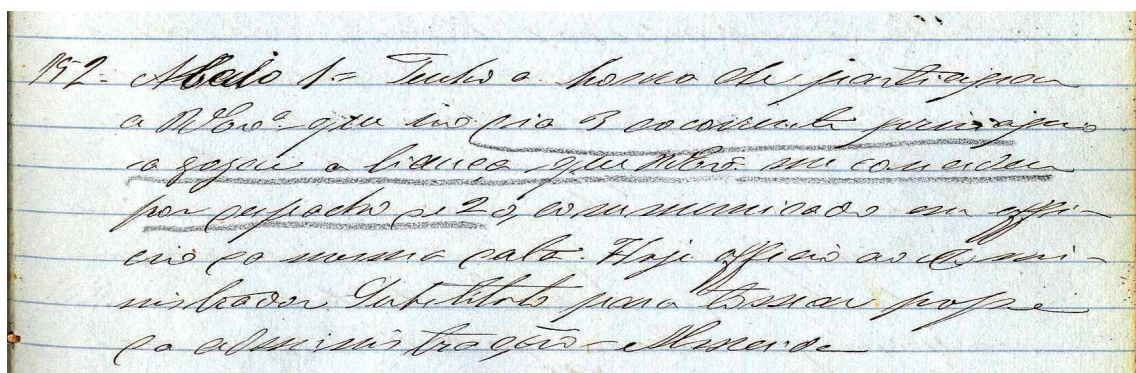 152 - Abril 1 = Tenho a honra de participar
a VExª que no dia 3 do corrente principio
a gozar a licença que VExª me concedeu
por despacho de 2 e, communicado em offi-
cio da mesma data. Hoje officio ao admi-
nistrador Substituto para tomar posse
da administração - Almeida